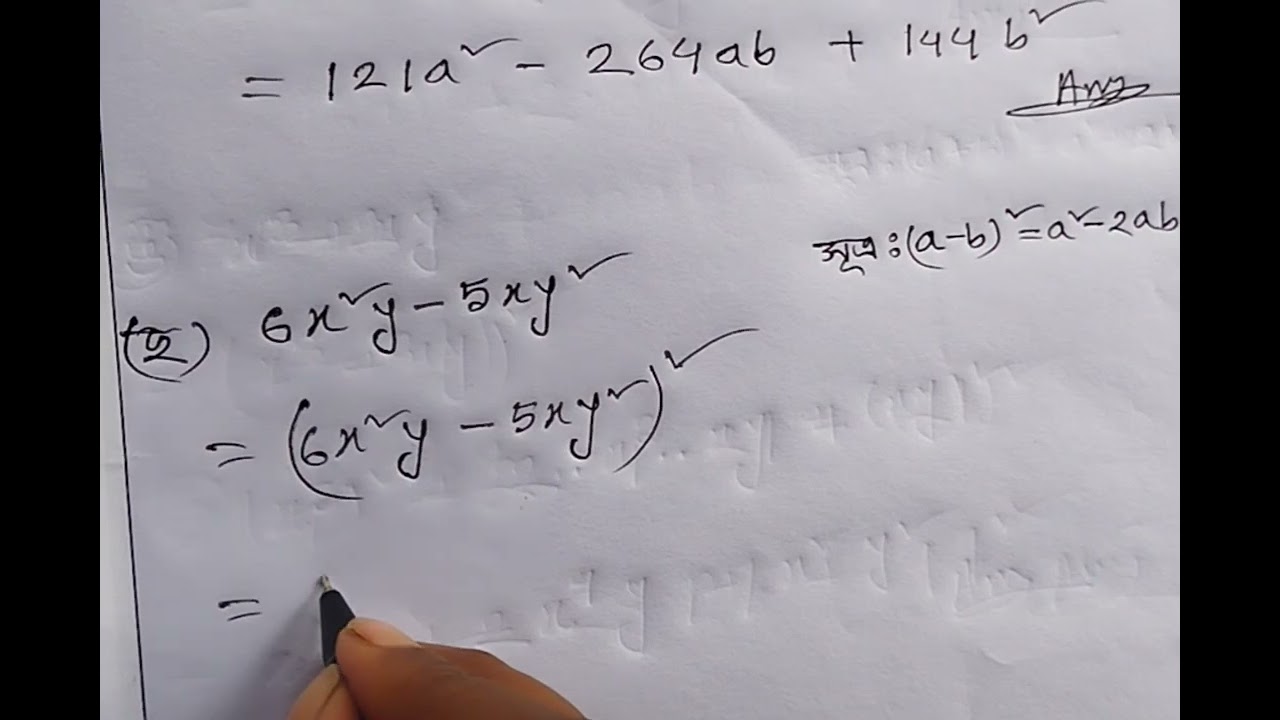 = 121a² - 264ab + 144b²
Ans
সূত্র : (a-b)² = a² - 2ab
(ছ) 6x²y - 5xy²
= (6x²y - 5xy²)²
=